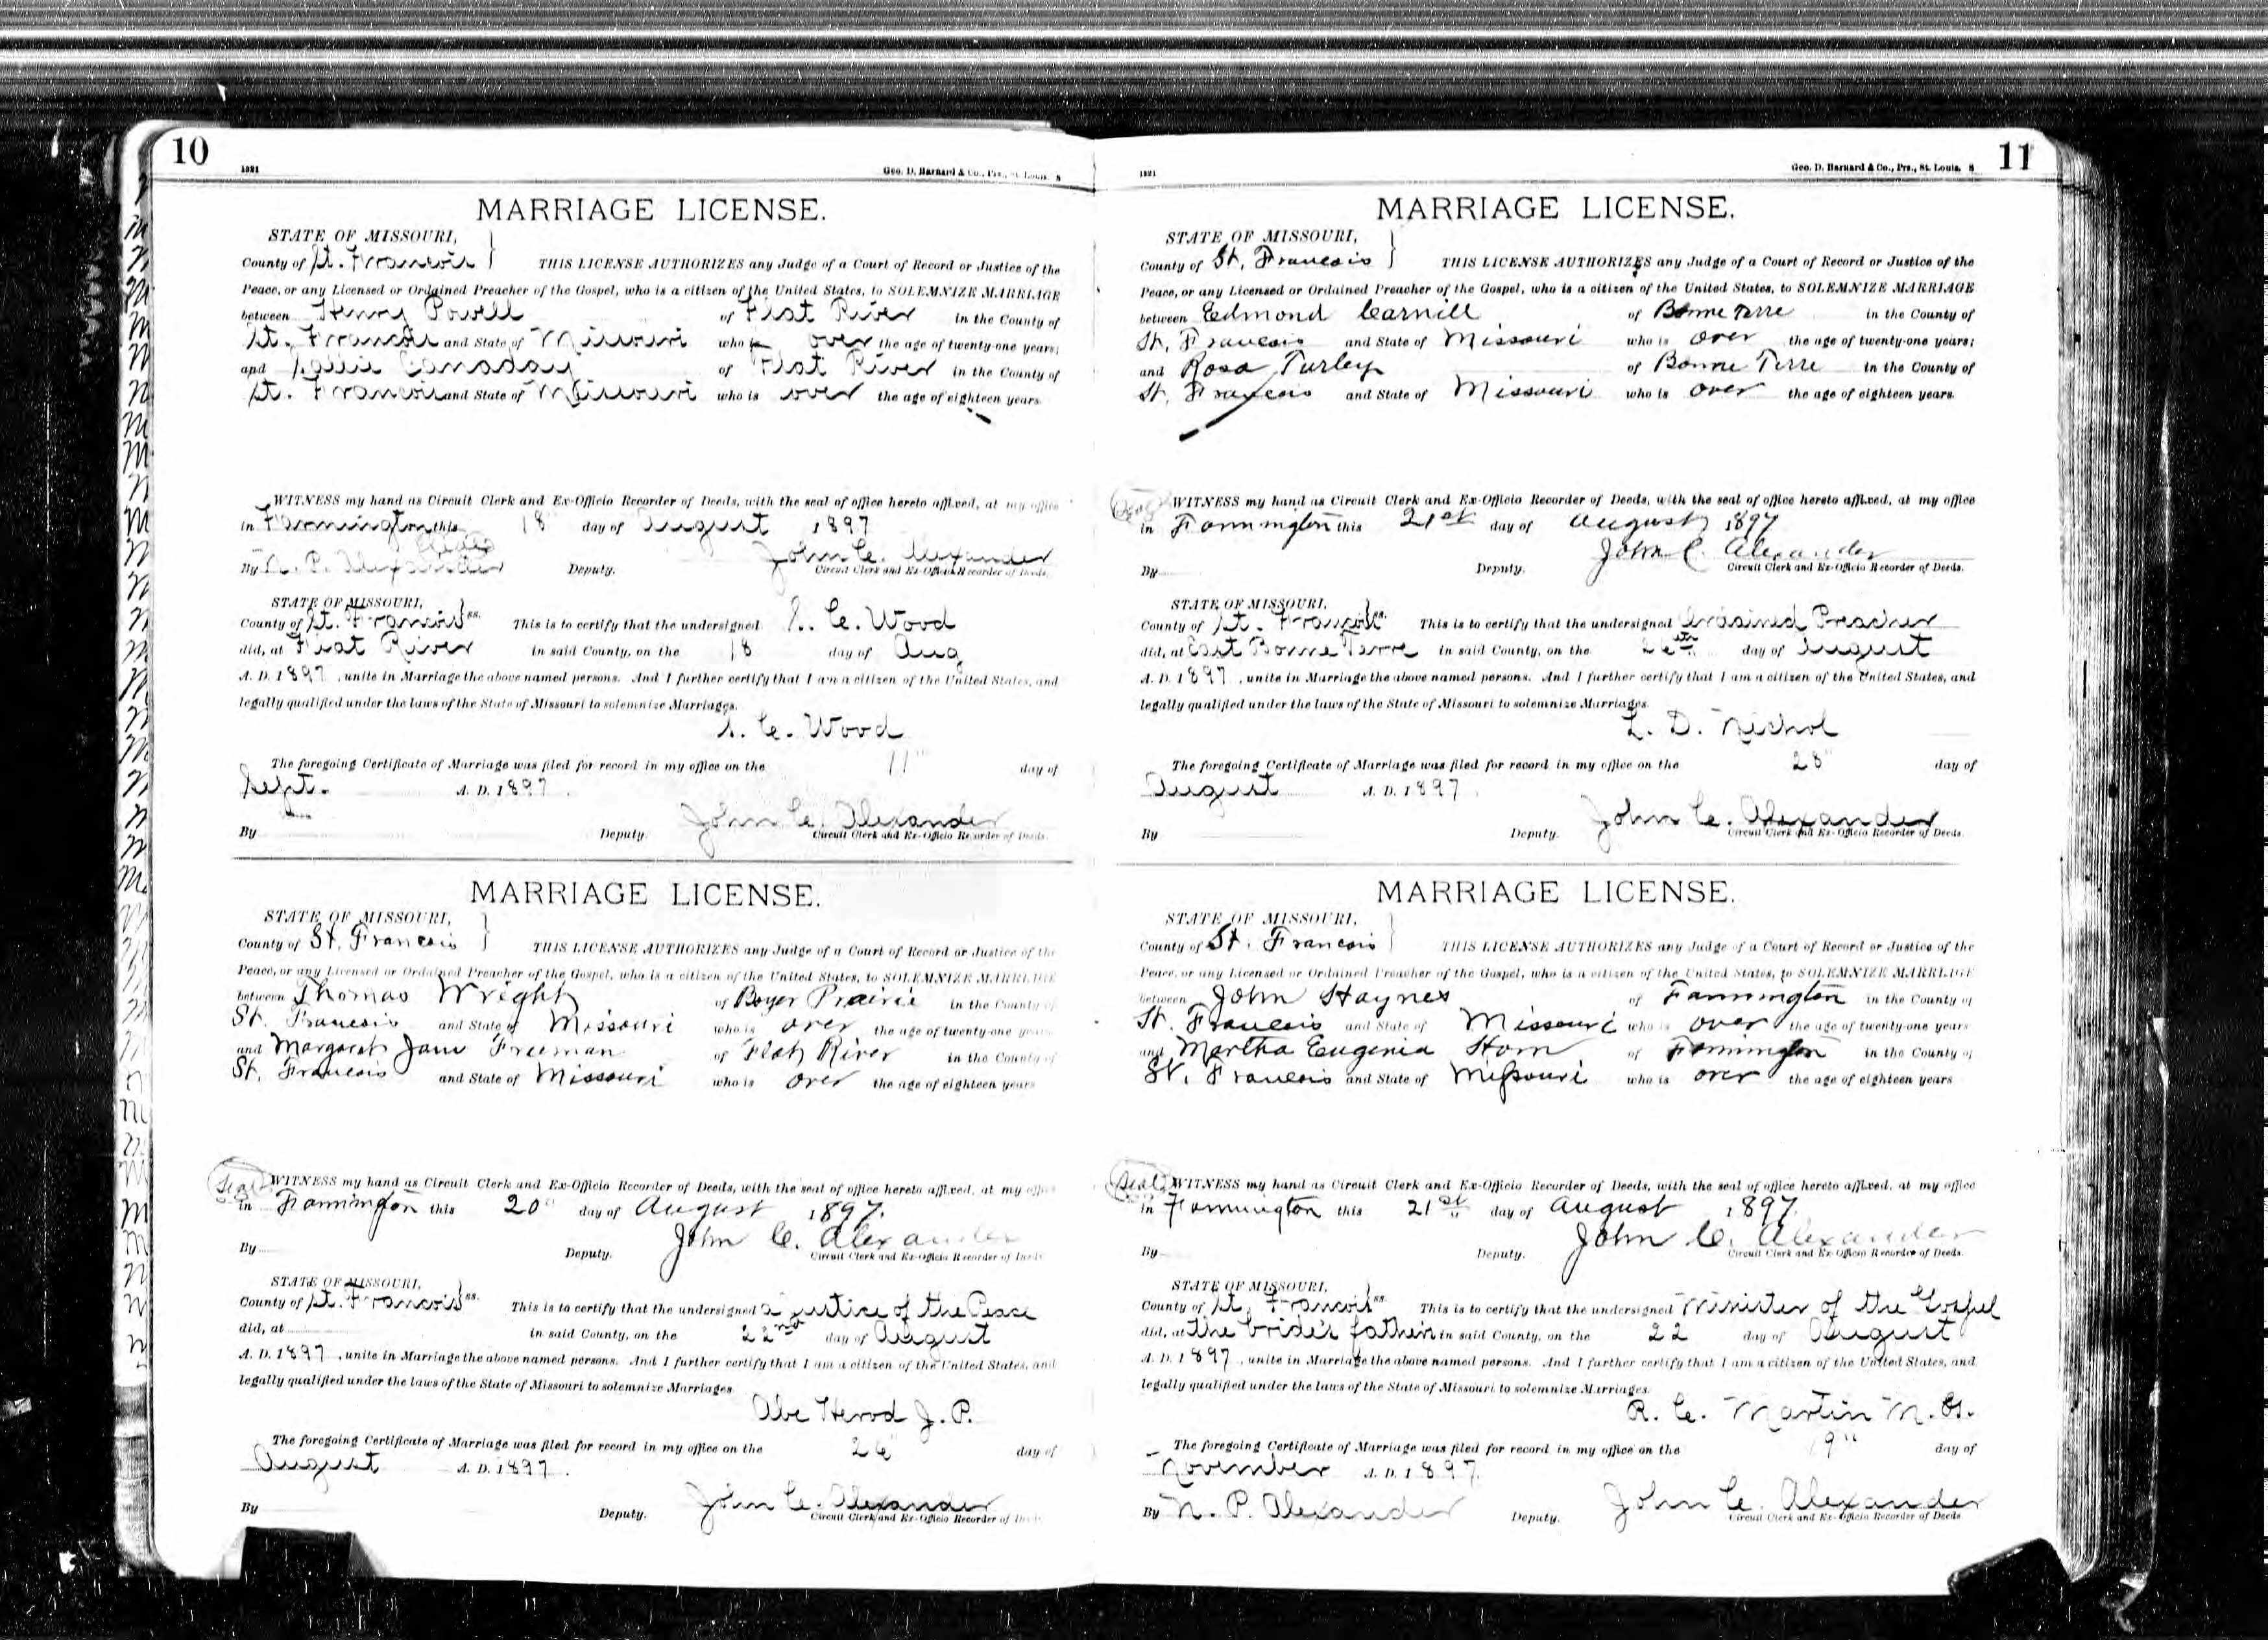 10
1821 Geo. D. Barnard & Co., Prs., St. Louis. S
MARRIAGE LICENSE.
STATE OF MISSOURI,
County of St. Francois THIS LICENSE AUTHORIZES any Judge of a Court of Record or Justice of the
Peace, or any Licensed or Ordained Preacher of the Gospel, who is a citizen of the United States, to SOLEMNIZE MARRIAGE
between Henry Powell of Flat River in the County of
St. Francois and State of Missouri who is over the age of twenty-one years;
and Canaday of Flat River in the County of
St. Francois and State of Missouri who is over the age of eighteen years.
WITNESS my hand as Circuit Clerk and Ex-Officio Recorder of Deeds, with the seal of office hereto affixed, at my office
in Farmington this 18" day of August 1897
By N. P. Alexander Deputy. John C. Alexander
Circuit Clerk and Ex-Officio Recorder of Deeds.
STATE OF MISSOURI,
County of St. Francois ss. This is to certify that the undersigned S. C. Wood
did, at Flat River in said County, on the 18 day of Aug
A. D. 1897, unite in Marriage the above named persons. And I further certify that I am a citizen of the United States, and
legally qualified under the laws of the State of Missouri to solemnize Marriages.
S. C. Wood
The foregoing Certificate of Marriage was filed for record in my office on the 11" day of
Sept. A. D. 1897.
By Deputy. John C. Alexander
Circuit Clerk and Ex-Officio Recorder of Deeds.
MARRIAGE LICENSE.
STATE OF MISSOURI,
County of St. Francois THIS LICENSE AUTHORIZES any Judge of a Court of Record or Justice of the
Peace, or any Licensed or Ordained Preacher of the Gospel, who is a citizen of the United States, to SOLEMNIZE MARRIAGE
between Thomas Wright of Boyer Prairie in the County of
St. Francois and State of Missouri who is over the age of twenty-one years
and Margaret Jane Freeman of Flat River in the County of
St. Francois and State of Missouri who is over the age of eighteen years
Seal WITNESS my hand as Circuit Clerk and Ex-Officio Recorder of Deeds, with the seal of office hereto affixed, at my office
in Farmington this 20" day of August 1897.
By Deputy. John C. Alexander
Circuit Clerk and Ex-Officio Recorder of Deeds
STATE OF MISSOURI,
County of St. Francois ss. This is to certify that the undersigned a Justice of the Peace
did, at in said County, on the 22nd day of August
A. D. 1897, unite in Marriage the above named persons. And I further certify that I am a citizen of the United States, and
legally qualified under the laws of the State of Missouri to solemnize Marriages
Abe Herod J. P.
The foregoing Certificate of Marriage was filed for record in my office on the 26" day of
August A. D. 1897.
By Deputy. John C. Alexander
Circuit Clerk and Ex-Officio Recorder of Deeds
11
1821 Geo. D. Barnard & Co., Prs., St. Louis. S
MARRIAGE LICENSE.
STATE OF MISSOURI,
County of St. Francois THIS LICENSE AUTHORIZES any Judge of a Court of Record or Justice of the
Peace, or any Licensed or Ordained Preacher of the Gospel, who is a citizen of the United States, to SOLEMNIZE MARRIAGE
between Edmond Carnill of Bonne Terre in the County of
St. Francois and State of Missouri who is over the age of twenty-one years;
and Rosa Turley of Bonne Terre in the County of
St. Francois and State of Missouri who is over the age of eighteen years.
Seal WITNESS my hand as Circuit Clerk and Ex-Officio Recorder of Deeds, with the seal of office hereto affixed, at my office
in Farmington this 21st day of August 1897
By Deputy. John C. Alexander
Circuit Clerk and Ex-Officio Recorder of Deeds.
STATE OF MISSOURI,
County of St. Francois ss. This is to certify that the undersigned Ordained Preacher
did, at East Bonne Terre in said County, on the 26th day of August
A. D. 1897, unite in Marriage the above named persons. And I further certify that I am a citizen of the United States, and
legally qualified under the laws of the State of Missouri to solemnize Marriages.
L. D. Nichol
The foregoing Certificate of Marriage was filed for record in my office on the 28" day of
August A. D. 1897.
By Deputy. John C. Alexander
Circuit Clerk and Ex-Officio Recorder of Deeds.
MARRIAGE LICENSE.
STATE OF MISSOURI,
County of St. Francois THIS LICENSE AUTHORIZES any Judge of a Court of Record or Justice of the
Peace, or any Licensed or Ordained Preacher of the Gospel, who is a citizen of the United States, to SOLEMNIZE MARRIAGE
between John Haynes of Farmington in the County of
St. Francois and State of Missouri who is over the age of twenty-one years
and Martha Eugenia Horn of Farmington in the County of
St. Francois and State of Missouri who is over the age of eighteen years
Seal WITNESS my hand as Circuit Clerk and Ex-Officio Recorder of Deeds, with the seal of office hereto affixed, at my office
in Farmington this 21st day of August 1897.
By Deputy. John C. Alexander
Circuit Clerk and Ex-Officio Recorder of Deeds.
STATE OF MISSOURI,
County of St. Francois ss. This is to certify that the undersigned Minister of the Gospel
did, at the bride's father's in said County, on the 22 day of August
A. D. 1897, unite in Marriage the above named persons. And I further certify that I am a citizen of the United States, and
legally qualified under the laws of the State of Missouri to solemnize Marriages.
R. C. Martin M. G.
The foregoing Certificate of Marriage was filed for record in my office on the 19" day of
November A. D. 1897.
By N. P. Alexander Deputy. John C. Alexander
Circuit Clerk and Ex-Officio Recorder of Deeds